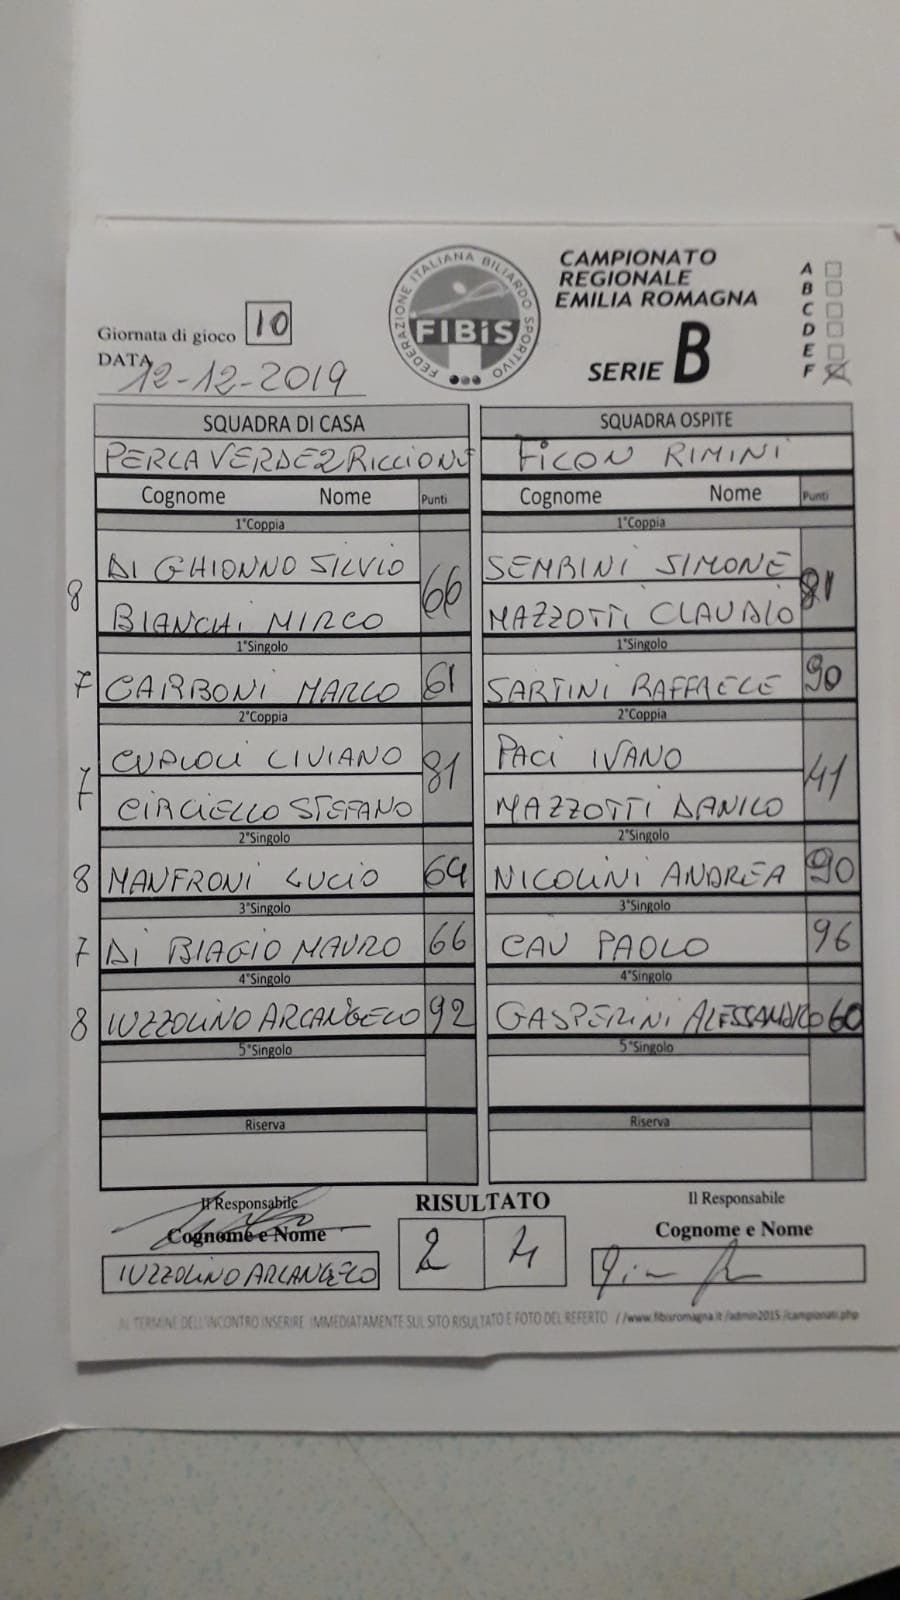 FEDERAZIONE ITALIANA BILIARDO SPORTIVO
FIBiS
CAMPIONATO
REGIONALE
EMILIA ROMAGNA
SERIE B
A
B
C
D
E
F
Giornata di gioco 10
DATA 12-12-2019
SQUADRA DI CASA SQUADRA OSPITE
PERLA VERDE 2 RICCIONE FICON RIMINI
Cognome Nome Punti Cognome Nome Punti
1°Coppia 1°Coppia
DI GHIONNO SILVIO SEMBINI SIMONE
8 66 81
BIANCHI MIRCO MAZZOTTI CLAUDIO
1°Singolo 1°Singolo
7 CARBONI MARCO 61 SARTINI RAFFAELE 90
2°Coppia 2°Coppia
CUPIOLI LIVIANO PACI IVANO
7 81 41
CIRCIELLO STEFANO MAZZOTTI DANILO
2°Singolo 2°Singolo
8 MANFRONI LUCIO 64 NICOLINI ANDREA 90
3°Singolo 3°Singolo
7 DI BIAGIO MAURO 66 CAU PAOLO 96
4°Singolo 4°Singolo
8 IUZZOLINO ARCANGELO 92 GASPERINI ALESSANDRO 60
5°Singolo 5°Singolo
Riserva Riserva
Il Responsabile RISULTATO Il Responsabile
Cognome e Nome Cognome e Nome
IUZZOLINO ARCANGELO 2 4
AL TERMINE DELL'INCONTRO INSERIRE IMMEDIATAMENTE SUL SITO RISULTATO E FOTO DEL REFERTO //www.fibisromagna.it/admin2015/campionati.php